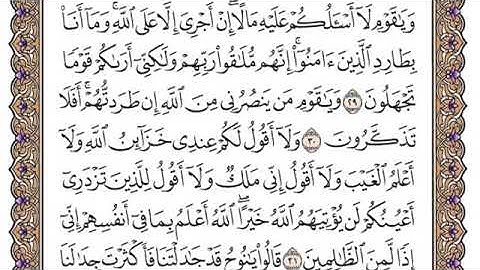 وَيَٰقَوْمِ لَآ أَسْـَٔلُكُمْ عَلَيْهِ مَالًا ۖ إِنْ أَجْرِىَ إِلَّا عَلَى ٱللَّهِ ۚ وَمَآ أَنَا۠
بِطَارِدِ ٱلَّذِينَ ءَامَنُوٓا۟ ۚ إِنَّهُم مُّلَٰقُوا۟ رَبِّهِمْ وَلَٰكِنِّىٓ أَرَىٰكُمْ قَوْمًا
تَجْهَلُونَ ٢٩ وَيَٰقَوْمِ مَن يَنصُرُنِى مِنَ ٱللَّهِ إِن طَرَدتُّهُمْ ۚ أَفَلَا
تَذَكَّرُونَ ٣٠ وَلَآ أَقُولُ لَكُمْ عِندِى خَزَآئِنُ ٱللَّهِ وَلَآ
أَعْلَمُ ٱلْغَيْبَ وَلَآ أَقُولُ إِنِّى مَلَكٌ وَلَآ أَقُولُ لِلَّذِينَ تَزْدَرِىٓ
أَعْيُنُكُمْ لَن يُؤْتِيَهُمُ ٱللَّهُ خَيْرًا ۖ ٱللَّهُ أَعْلَمُ بِمَا فِىٓ أَنفُسِهِمْ ۖ إِنِّىٓ
إِذًا لَّمِنَ ٱلظَّٰلِمِينَ ٣١ قَالُوا۟ يَٰنُوحُ قَدْ جَٰدَلْتَنَا فَأَكْثَرْتَ جِدَٰلَنَا